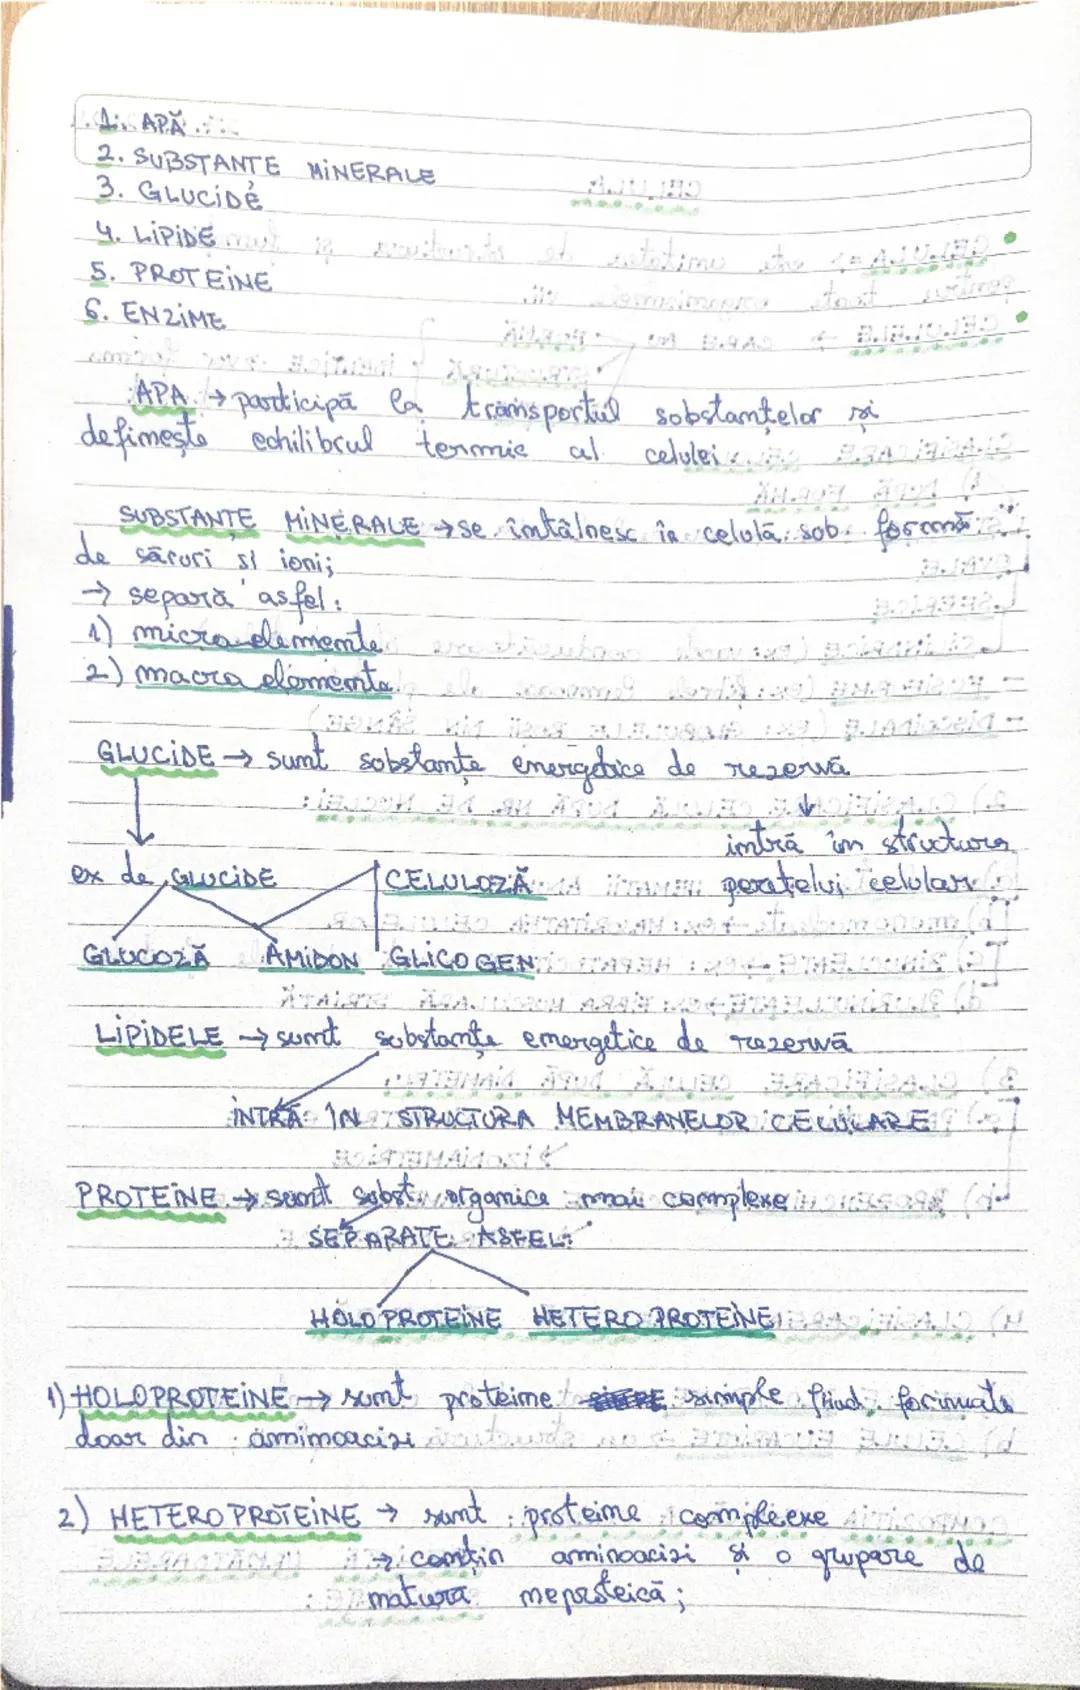 1. APĂ
2. SUBSTANȚE MINERALE
3. GLUCIDE
4. LIPIDE
5. PROTEINE
6. ENZIME
APA → participă la transportul substanțelor și
definește echilibrul termic al celulei
SUBSTANȚE MINERALE → se întâlnesc în celulă sob formă
de săruri și ioni;
→ separă asfel:
1) micro elemente
2) macro elemente
GLUCIDE → sunt substanțe energetice de rezervă
intră în structura
ex de GLUCIDE CELULOZĂ peretelui celular
GLUCOZĂ AMIDON GLICOGEN
LIPIDELE → sunt substanțe energetice de rezervă
INTRĂ IN STRUCTURA MEMBRANELOR CELULARE
PROTEINE → sunt subst. organice mai complexe
SEPARATE ASFEL:
HOLOPROTEINE HETEROPROTEINE
1) HOLOPROTEINE → sunt proteine simple fiind formate
doar din aminoacizi
2) HETEROPROTEINE → sunt proteine compleexe
→ conțin aminoacizi și o grupare de
natură neproteică;